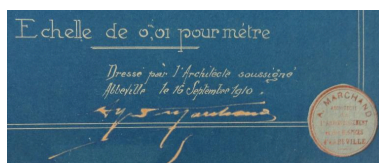 Echelle de 0,01 pour mètre
Dressé par l'Architecte soussigné
Abbeville le 16 Septembre 1910.
Marchand
A. MARCHAND
ABBEVILLE